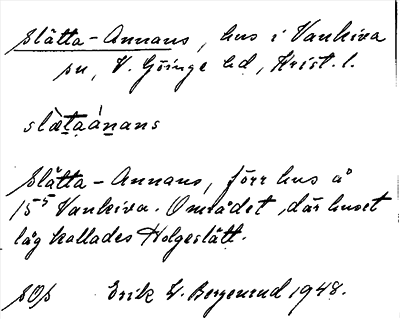 Slätta-Annans, hus i Vankiva
sn, V. Göinge hd, Krist. l.
slæ̀taánans
Slätta-Annans, förr hus å
15⁵ Vankiva. Området, där huset
låg kallades Holgeslätt.
SOs Erik W. Bergenrud 1948.